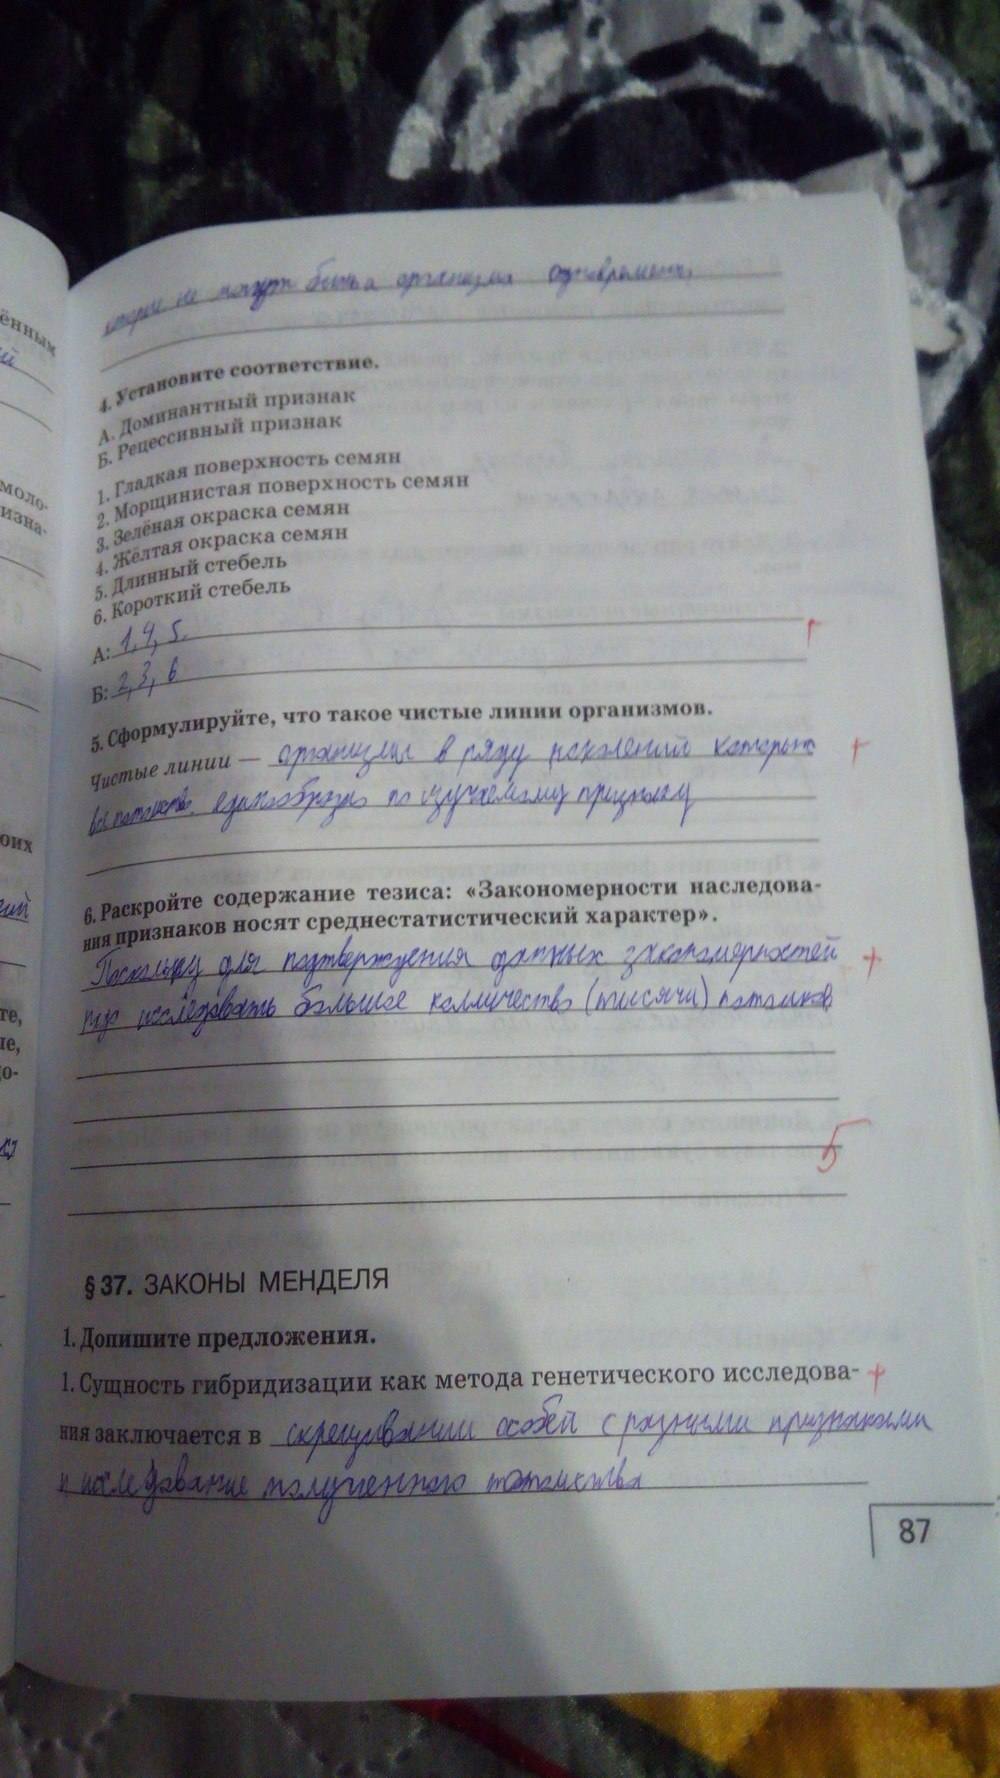 которые не могут быть в организма одновременно.
4. Установите соответствие.
А. Доминантный признак
Б. Рецессивный признак
1. Гладкая поверхность семян
2. Морщинистая поверхность семян
3. Зелёная окраска семян
4. Жёлтая окраска семян
5. Длинный стебель
6. Короткий стебель
А: 1, 4, 5.
Б: 2, 3, 6
5. Сформулируйте, что такое чистые линии организмов.
Чистые линии — организмы в ряду поколений которых +
всё потомство единообразно по изучаемому признаку
6. Раскройте содержание тезиса: «Закономерности наследова-
ния признаков носят среднестатистический характер».
Поскольку для подтверждения данных закономерностей +
исследовать большое колличество (тысячи) потомков
5
§ 37. ЗАКОНЫ МЕНДЕЛЯ
1. Допишите предложения.
1. Сущность гибридизации как метода генетического исследова- +
ния заключается в скрещивании особей с разными признаками
и исследование полученного потомства
87
ённым
ий
моло-
изна-
оих
ний
те,
ые,
до-